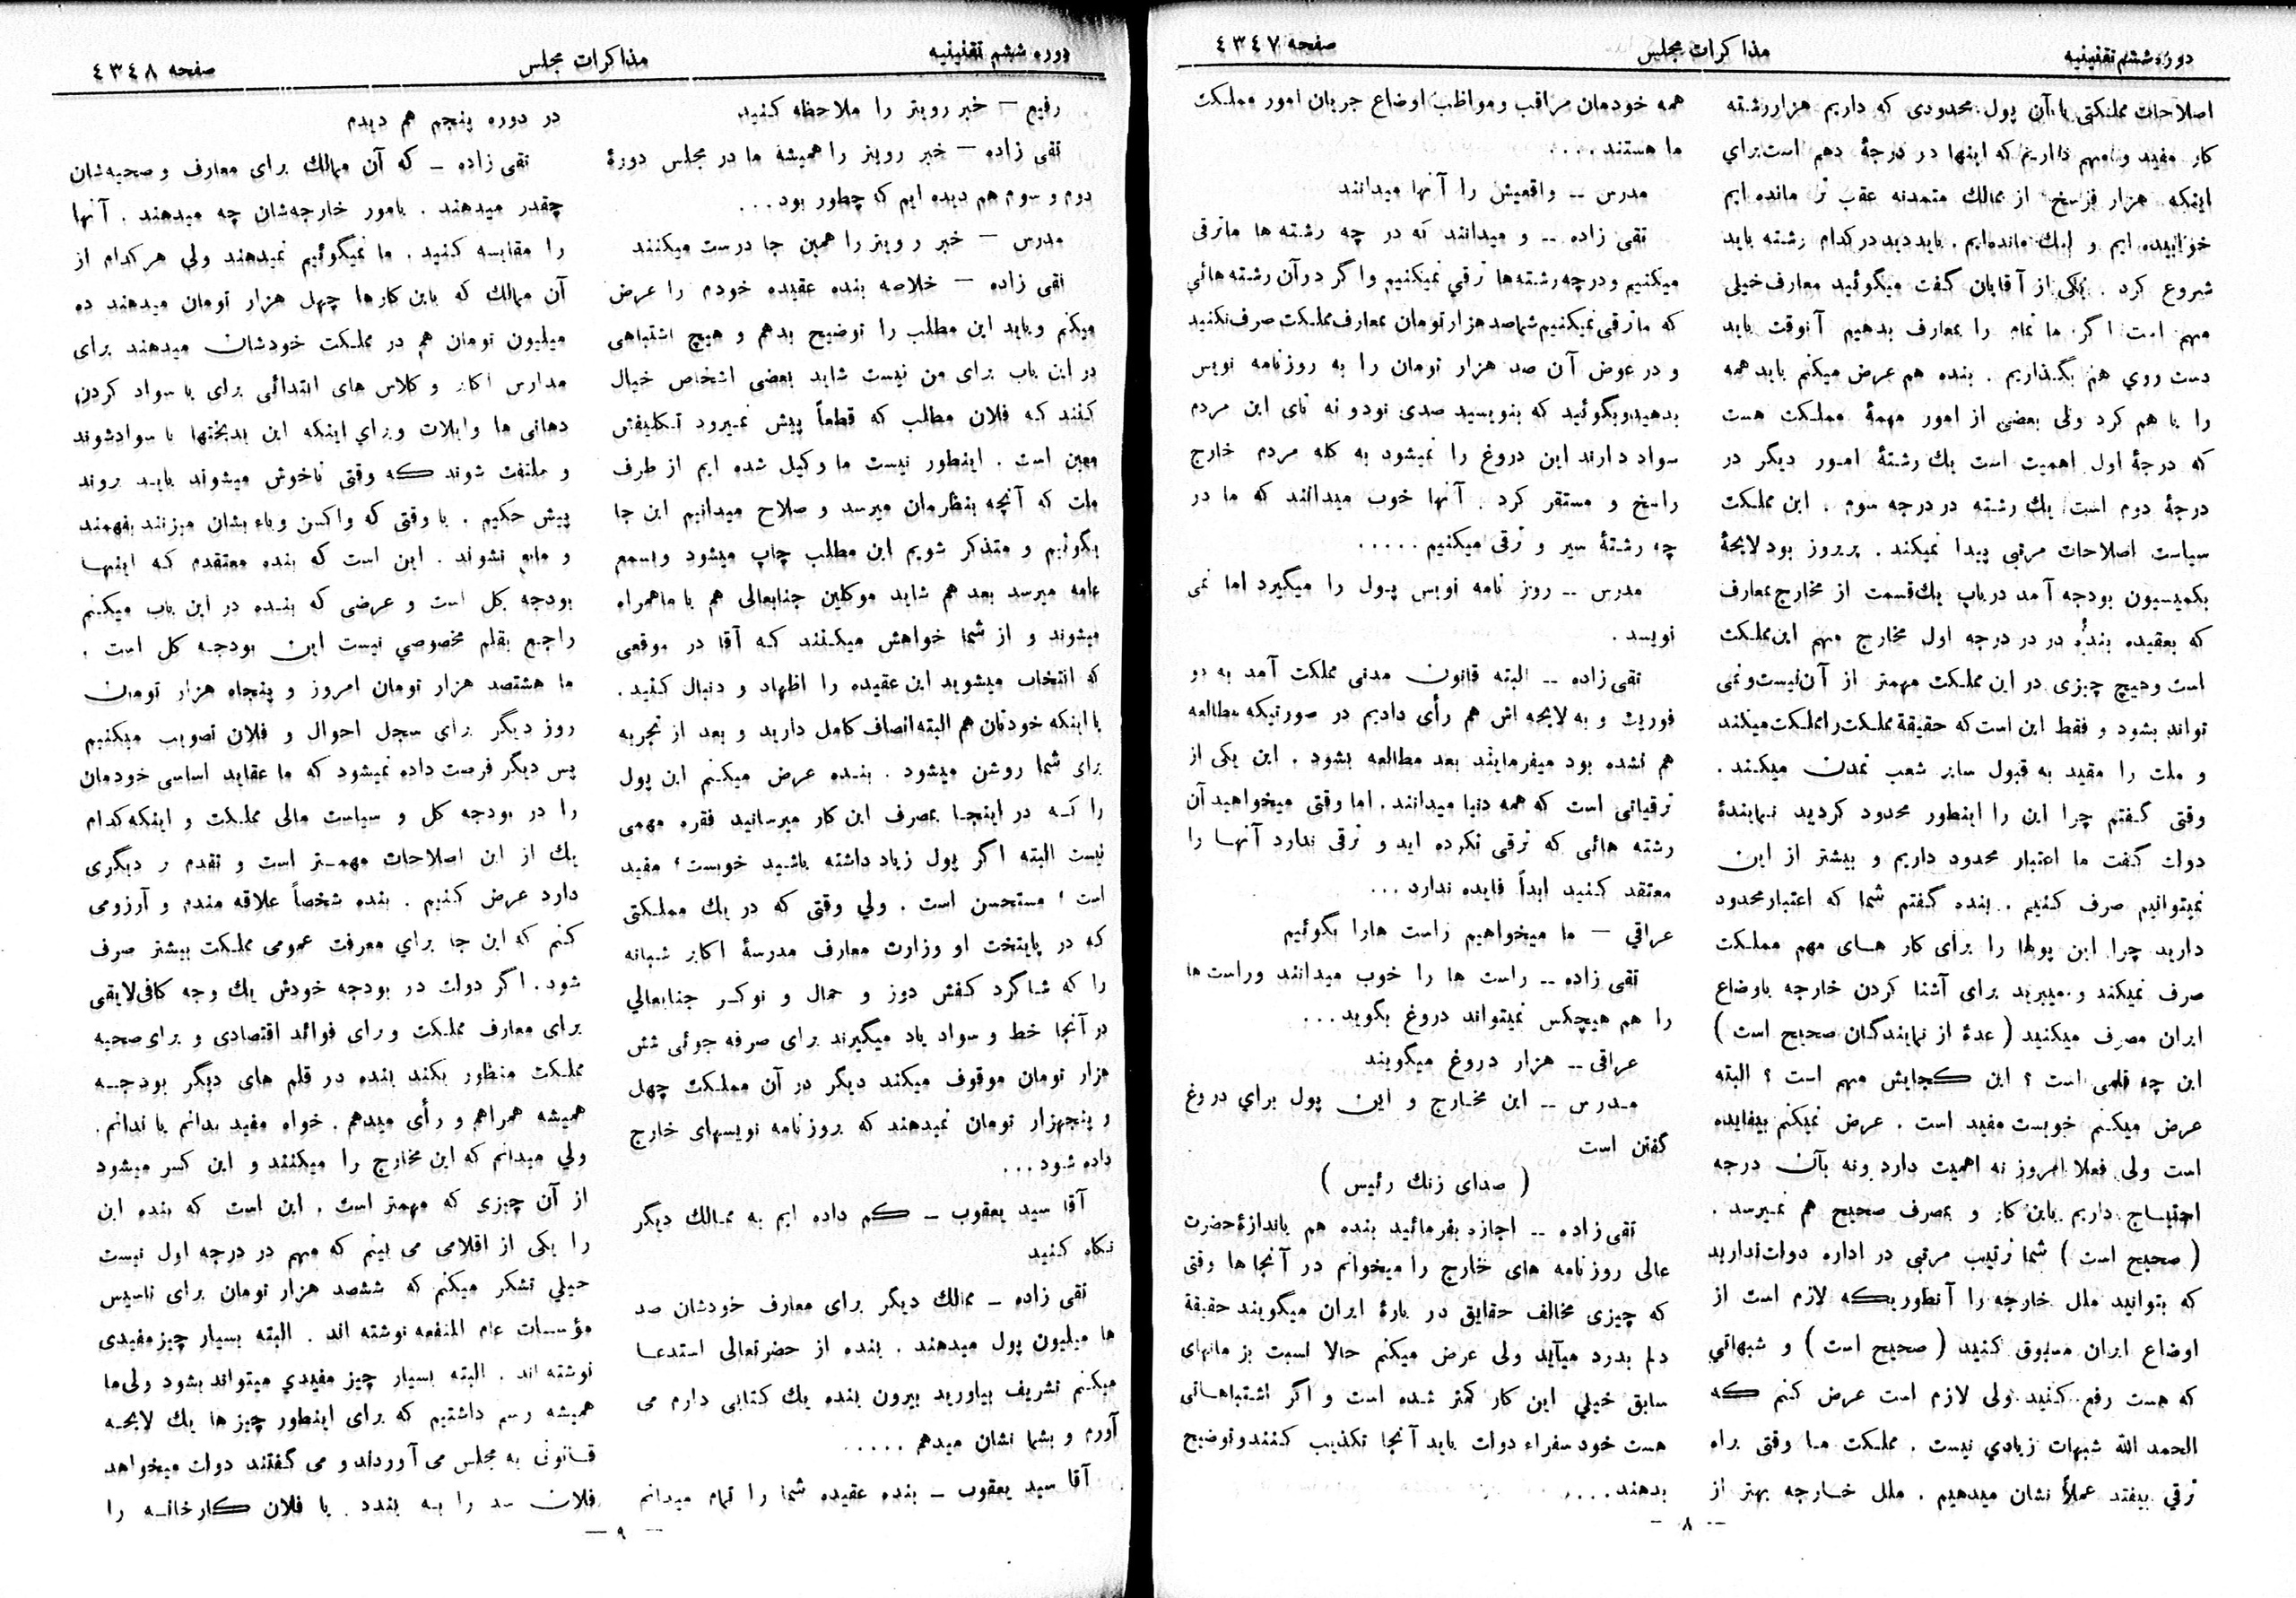 دوره ششم تقنینیه
مذاکرات مجلس
صفحه ٤٣٤٧
اصلاحات مملکتی با آن پول محدودی که داریم هزار رشته
کار مفید و مهم داریم که اینها در درجهٔ دهم است برای
اینکه هزار فرسخ از ممالک متمدنه عقب تر مانده ایم
خوابیده ایم و لنك مانده‌ایم . باید دید در کدام رشته باید
شروع کرد . یکی از آقایان گفت میگوئید معارف خیلی
مهم است اگر ما تمام را بمعارف بدهیم آنوقت باید
دست روي هم بگذاریم . بنده هم عرض میکنم باید همه
را با هم کرد ولی بعضی از امور مهمهٔ مملکت هست
که درجهٔ اول اهمیت است یك رشتهٔ امور دیگر در
درجهٔ دوم است یك رشته در درجه سوم . این مملکت
سیاست اصلاحات مرتبی پیدا نمیکند . پریروز بود لایحهٔ
بکمیسیون بودجه آمد در باب یك قسمت از مخارج معارف
که بعقیده بنده در در درجه اول مخارج مهم این مملکت
است و هیچ چیزی در این مملکت مهمتر از آن نیست و نمی
تواند بشود و فقط این است که حقیقة مملکت را مملکت میکند
و ملت را مقید به قبول سایر شعب تمدن میکند .
وقتی گفتم چرا این را اینطور محدود کردید نمایندهٔ
دولت گفت ما اعتبار محدود داریم و بیشتر از این
نمیتوانیم صرف کنیم . بنده گفتم شما که اعتبار محدود
دارید چرا این پولها را برای کار های مهم مملکت
صرف نمیکند و میبرید برای آشنا کردن خارجه باوضاع
ایران مصرف میکنید ( عدهٔ از نمایندگان صحیح است )
این چه قلمی است ؟ این کجایش مهم است ؟ البته
عرض میکنم خوبست مفید است . عرض نمیکنم بیفایده
است ولی فعلا امروز نه اهمیت دارد ونه بآن درجه
احتیاج داریم باین کار و بمصرف صحیح هم نمیرسد .
( صحیح است ) شما ترتیب مرتبی در اداره دولت ندارید
که بتوانید ملل خارجه را آنطوریکه لازم است از
اوضاع ایران مسبوق کنید ( صحیح است ) و شبهاتي
که هست رفع کنید ولی لازم است عرض کنم که
الحمد الله شبهات زیادي نیست . مملکت ما وقتی براه
ترقي بیفتد عملاً نشان میدهیم . ملل خارجه بهتر از
همه خودمان مراقب و مواظب اوضاع جریان امور مملکت
ما هستند ....
مدرس -- واقعیش را آنها میدانند
تقی زاده -- و میدانند که در چه رشته ها ما ترقی
میکنیم و در چه رشته‌ها ترقي نمیکنیم و اگر در آن رشته هائي
که ما ترقی نمیکنیم شما صد هزار تومان بمعارف مملکت صرف نکنید
و در عوض آن صد هزار تومان را به روزنامه نویس
بدهید و بگوئید که بنویسید صدی نود و نه تای این مردم
سواد دارند این دروغ را نمیشود به کله مردم خارج
راسخ و مستقر کرد . آنها خوب میدانند که ما در
چه رشتهٔ سیر و ترقی میکنیم .....
مدرس -- روز نامه نویس پول را میگیرد اما نمی
نویسد .
تقی زاده -- البته قانون مدنی مملکت آمد به دو
فوریت و به لایحه اش هم رأی دادیم در صورتیکه مطالعه
هم نشده بود میفرمایند بعد مطالعه بشود . این یکی از
ترقیاتی است که همه دنیا میدانند . اما وقتی میخواهید آن
رشته هائی که ترقی نکرده اید و ترقی ندارد آنها را
معتقد کنید ابداً فایده ندارد ...
عراقي – ما میخواهیم راست هارا بگوئیم
تقی زاده -- راست ها را خوب میدانند و راست ها
را هم هیچکس نمیتواند دروغ بگوید ...
عراقی -- هزار دروغ میگویند
مدرس -- این مخارج و این پول براي دروغ
گفتن است
( صدای زنك رئیس )
تقی زاده -- اجازه بفرمائید بنده هم باندازهٔ حضرت
عالی روزنامه های خارج را میخوانم در آنجا ها وقتی
که چیزی مخالف حقایق در بارهٔ ایران میگویند حقیقة
دلم بدرد میآید ولی عرض میکنم حالا نسبت بز مانهای
سابق خیلي این کار کمتر شده است و اگر اشتباهاتی
هست خود سفراء دولت باید آنجا تکذیب کنند و توضیح
بدهند ....
-- ٨ --
دوره ششم تقنینیه
مذاکرات مجلس
صفحه ٤٣٤٨
رفیع – خبر رویتر را ملاحظه کنید
تقی زاده – خبر رویتر را همیشه ما در مجلس دورهٔ
دوم و سوم هم دیده ایم که چطور بود ...
مدرس – خبر رویتر را همین جا درست میکنند
تقی زاده – خلاصه بنده عقیده خودم را عرض
میکنم و باید این مطلب را توضیح بدهم و هیچ اشتباهی
در این باب برای من نیست شاید بعضی اشخاص خیال
کنند که فلان مطالب که قطعاً پیش نمیرود تکلیفش
معین است . اینطور نیست ما وکیل شده ایم از طرف
ملت که آنچه بنظرمان میرسد و صلاح میدانیم این جا
بگوئیم و متذکر شویم این مطلب چاپ میشود و بسمع
عامه میرسد بعد هم شاید موکلین جنابعالی هم با ما همراه
میشوند و از شما خواهش میکنند که آقا در موقعی
که انتخاب میشوید این عقیده را اظهار و دنبال کنید .
با اینکه خودتان هم البته انصاف کامل دارید و بعد از تجربه
برای شما روشن میشود . بنده عرض میکنم این پول
را که در اینجا بمصرف این کار میرسانید فقره مهمی
نیست البته اگر پول زیاد داشته باشید خوبست ؛ مفید
است ؛ مستحسن است . ولي وقتی که در یك مملکتی
که در پایتخت او وزارت معارف مدرسهٔ اکابر شبانه
را که شاگرد کفش دوز و حمال و نوکر جنابعالي
در آنجا خط و سواد یاد میگیرند برای صرفه جوئی شش
هزار تومان موقوف میکند دیگر در آن مملکت چهل
و پنجهزار تومان نمیدهند که بروزنامه نویسهای خارج
داده شود ...
آقا سید یعقوب ــ کم داده ایم به ممالك دیگر
نگاه کنید
تقی زاده ــ ممالك دیگر برای معارف خودشان صد
ها میلیون پول میدهند . بنده از حضرتعالی استدعا
میکنم تشریف بیاورید بیرون بنده یك کتابی دارم می
آورم و بشما نشان میدهم .....
آقا سید یعقوب ــ بنده عقیده شما را تمام میدانم
در دوره پنجم هم دیدم
تقی زاده ــ که آن ممالك برای معارف و صحیه‌شان
چقدر میدهند . بامور خارجه‌شان چه میدهند . آنها
را مقایسه کنید . ما نمیگوئیم نمیدهند ولی هر کدام از
آن ممالك که باین کارها چهل هزار تومان میدهند ده
میلیون تومان هم در مملکت خودشان میدهند برای
مدارس اکابر و کلاس های ابتدائی برای با سواد کردن
دهاتی ها و ایلات و براي اینکه این بدبختها با سواد شوند
و ملتفت شوند که وقتی ناخوش میشوند باید بروند
پیش حکیم . یا وقتی که واکسن وباء بشان میزنند بفهمند
و مانع نشوند . این است که بنده معتقدم که اینها
بودجه کل است و عرضی که بنده در این باب میکنم
راجع بقلم مخصوصي نیست این بودجه کل است .
ما هشتصد هزار تومان امروز و پنجاه هزار تومان
روز دیگر برای سجل احوال و فلان تصویب میکنیم
پس دیگر فرصت داده نمیشود که ما عقاید اساسی خودمان
را در بودجه کل و سیاست مالی مملکت و اینکه کدام
یك از این اصلاحات مهمتر است و تقدم بر دیگری
دارد عرض کنیم . بنده شخصاً علاقه مندم و آرزومی
کنم که این جا براي معرفت عمومی مملکت بیشتر صرف
شود . اگر دولت در بودجه خودش یك وجه کافی لایقی
برای معارف مملکت و برای فوائد اقتصادی و برای صحیه
مملکت منظور بکند بنده در قلم های دیگر بودجه
همیشه همراهم و رأی میدهم . خواه مفید بدانم یا ندانم .
ولي میدانم که این مخارج را میکنند و این کسر میشود
از آن چیزی که مهمتر است . این است که بنده این
را یکی از اقلامی می بینم که مهم در درجه اول نیست
خیلي تشکر میکنم که ششصد هزار تومان برای تاسیس
مؤسسات عام المنفعه نوشته اند . البته بسیار چیز مفیدی
نوشته اند . البته بسیار چیز مفیدي میتواند بشود ولی ما
همیشه رسم داشتیم که برای اینطور چیز ها یك لایحه
قانونی به مجلس می آوردند و می گفتند دولت میخواهد
فلان سد را به بندد . یا فلان کارخانه را
-- ٩ --